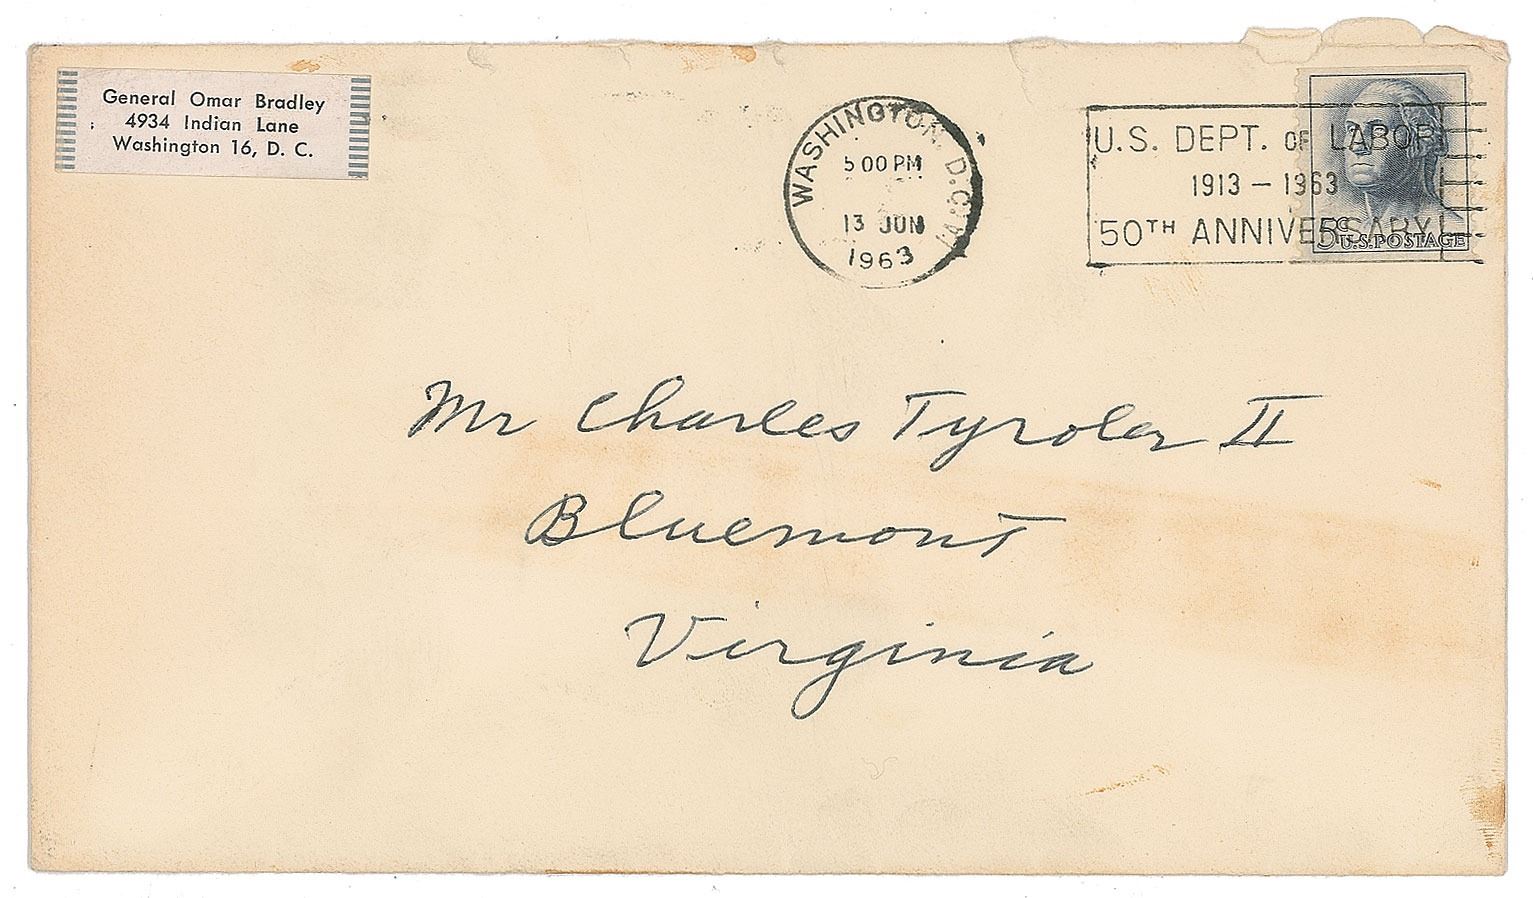 General Omar Bradley
4934 Indian Lane
Washington 16, D. C.
WASHINGTON, D.C.
5 00 PM
13 JUN
1963
U.S. DEPT. OF LABOR
1913 – 1963
50TH ANNIVERSARY
5¢ U.S. POSTAGE
Mr Charles Tyroler II
Bluemont
Virginia